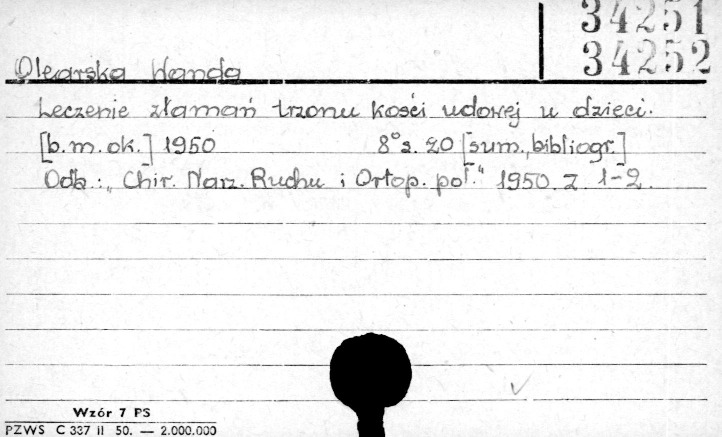 34251
34252
Olearska Wanda
Leczenie złamań trzonu kości udowej u dzieci.
[b.m.ok.] 1950 8° s. 20 [sum., bibliogr.]
Odb.: „Chir. Narz. Ruchu i Ortop. pol." 1950. z 1-2.
Wzór 7 PS
PZWS C 337 II 50. — 2.000.000